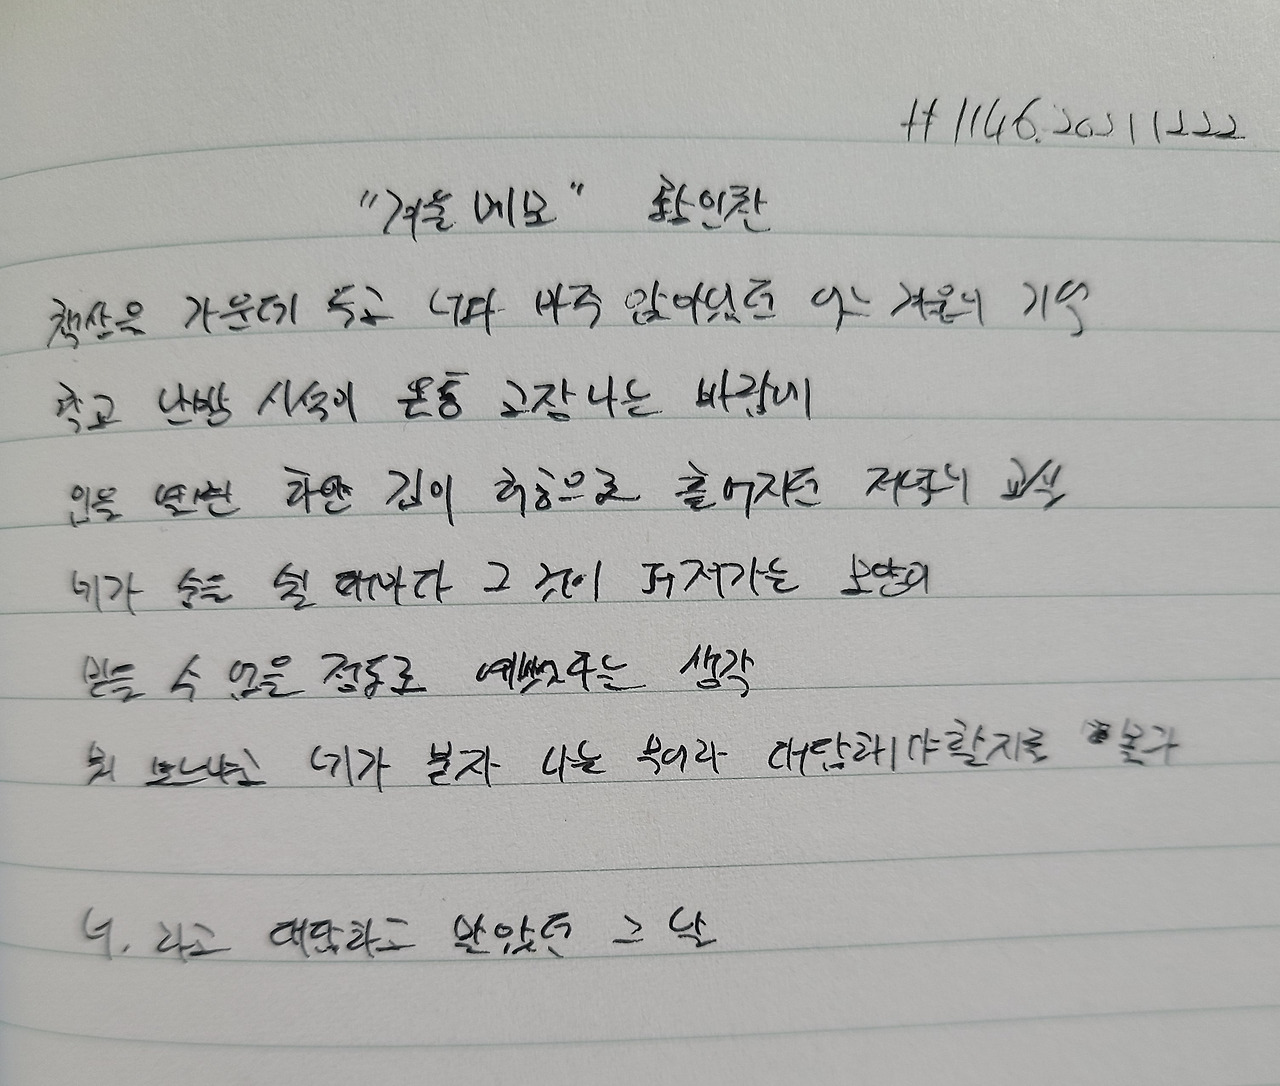 #1146.20211222
"겨울 메모" 황인찬
책상을 가운데 두고 너와 마주 앉아있던 어느 겨울의 기억
학교 난방 시설이 온통 고장나는 바람에
입을 열면 하얀 김이 허공으로 흩어지던 저녁의 교실
네가 숨을 쉴 때마다 그 것이 퍼져가는 모양이
믿을 수 없을 정도로 예뻤다는 생각
뭐 보느냐고 네가 묻자 나는 무어라 대답해야할지를 몰라
너. 라고 대답하고 말았던 그 날